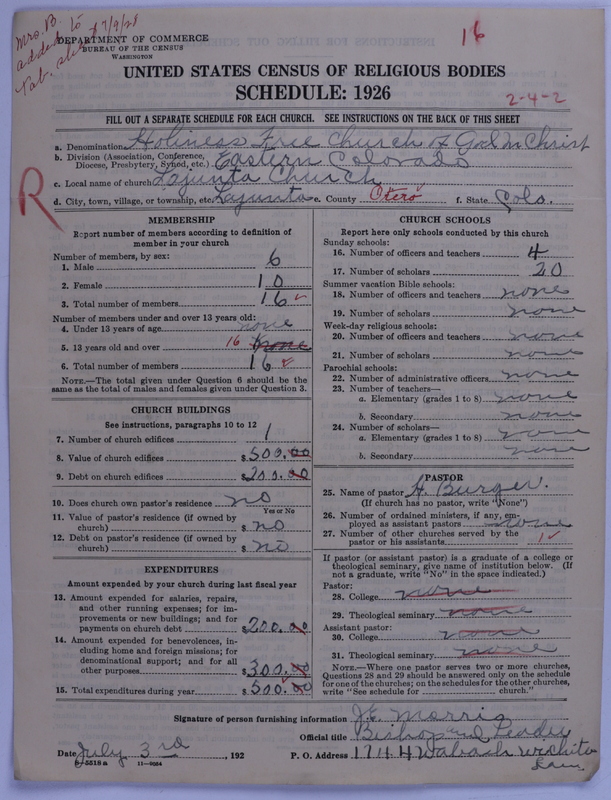 Mrs. B.
added to
tab. also 7/9/28
16
DEPARTMENT OF COMMERCE
BUREAU OF THE CENSUS
WASHINGTON
UNITED STATES CENSUS OF RELIGIOUS BODIES
SCHEDULE: 1926
2-4-2
FILL OUT A SEPARATE SCHEDULE FOR EACH CHURCH. SEE INSTRUCTIONS ON THE BACK OF THIS SHEET
a. Denomination Holiness Free Church of God In Christ
b. Division (Association, Conference, Diocese, Presbytery, Synod, etc.) Eastern Colorado
c. Local name of church Lajunta Church
d. City, town, village, or township, etc. Lajunta e. County Otero f. State Colo.
R
MEMBERSHIP
Report number of members according to definition of
member in your church
Number of members, by sex:
1. Male 6
2. Female 10
3. Total number of members 16
Number of members under and over 13 years old:
4. Under 13 years of age none
5. 13 years old and over 16 none
6. Total number of members 16
NOTE.—The total given under Question 6 should be the
same as the total of males and females given under Question 3.
CHURCH BUILDINGS
See instructions, paragraphs 10 to 12
7. Number of church edifices 1
8. Value of church edifices $ 500.00
9. Debt on church edifices $ 200.00
10. Does church own pastor's residence no
Yes or No
11. Value of pastor's residence (if owned by
church) $ no
12. Debt on pastor's residence (if owned by
church) $ no
EXPENDITURES
Amount expended by your church during last fiscal year
13. Amount expended for salaries, repairs,
and other running expenses; for im-
provements or new buildings; and for
payments on church debt $ 200.00
14. Amount expended for benevolences, in-
cluding home and foreign missions; for
denominational support; and for all
other purposes $ 300.00
15. Total expenditures during year $ 500.00
CHURCH SCHOOLS
Report here only schools conducted by this church
Sunday schools:
16. Number of officers and teachers 4
17. Number of scholars 20
Summer vacation Bible schools:
18. Number of officers and teachers none
19. Number of scholars none
Week-day religious schools:
20. Number of officers and teachers none
21. Number of scholars none
Parochial schools:
22. Number of administrative officers none
23. Number of teachers—
a. Elementary (grades 1 to 8) none
b. Secondary none
24. Number of scholars—
a. Elementary (grades 1 to 8) none
b. Secondary none
PASTOR
25. Name of pastor H. Burger.
(If church has no pastor, write "None")
26. Number of ordained ministers, if any, em-
ployed as assistant pastors none
27. Number of other churches served by the
pastor or his assistants 1
If pastor (or assistant pastor) is a graduate of a college or
theological seminary, give name of institution below. (If
not a graduate, write "No" in the space indicated.)
Pastor:
28. College none
29. Theological seminary none
Assistant pastor:
30. College none
31. Theological seminary none
NOTE.—Where one pastor serves two or more churches,
Questions 28 and 29 should be answered only on the schedule
for one of the churches; on the schedules for the other churches,
write "See schedule for church."
Signature of person furnishing information J. E. Morris
Official title Bishop and Leader
Date July 3rd, 192 P. O. Address 1744 Wabash Wichita
Kan.
8-5518a 11-9034